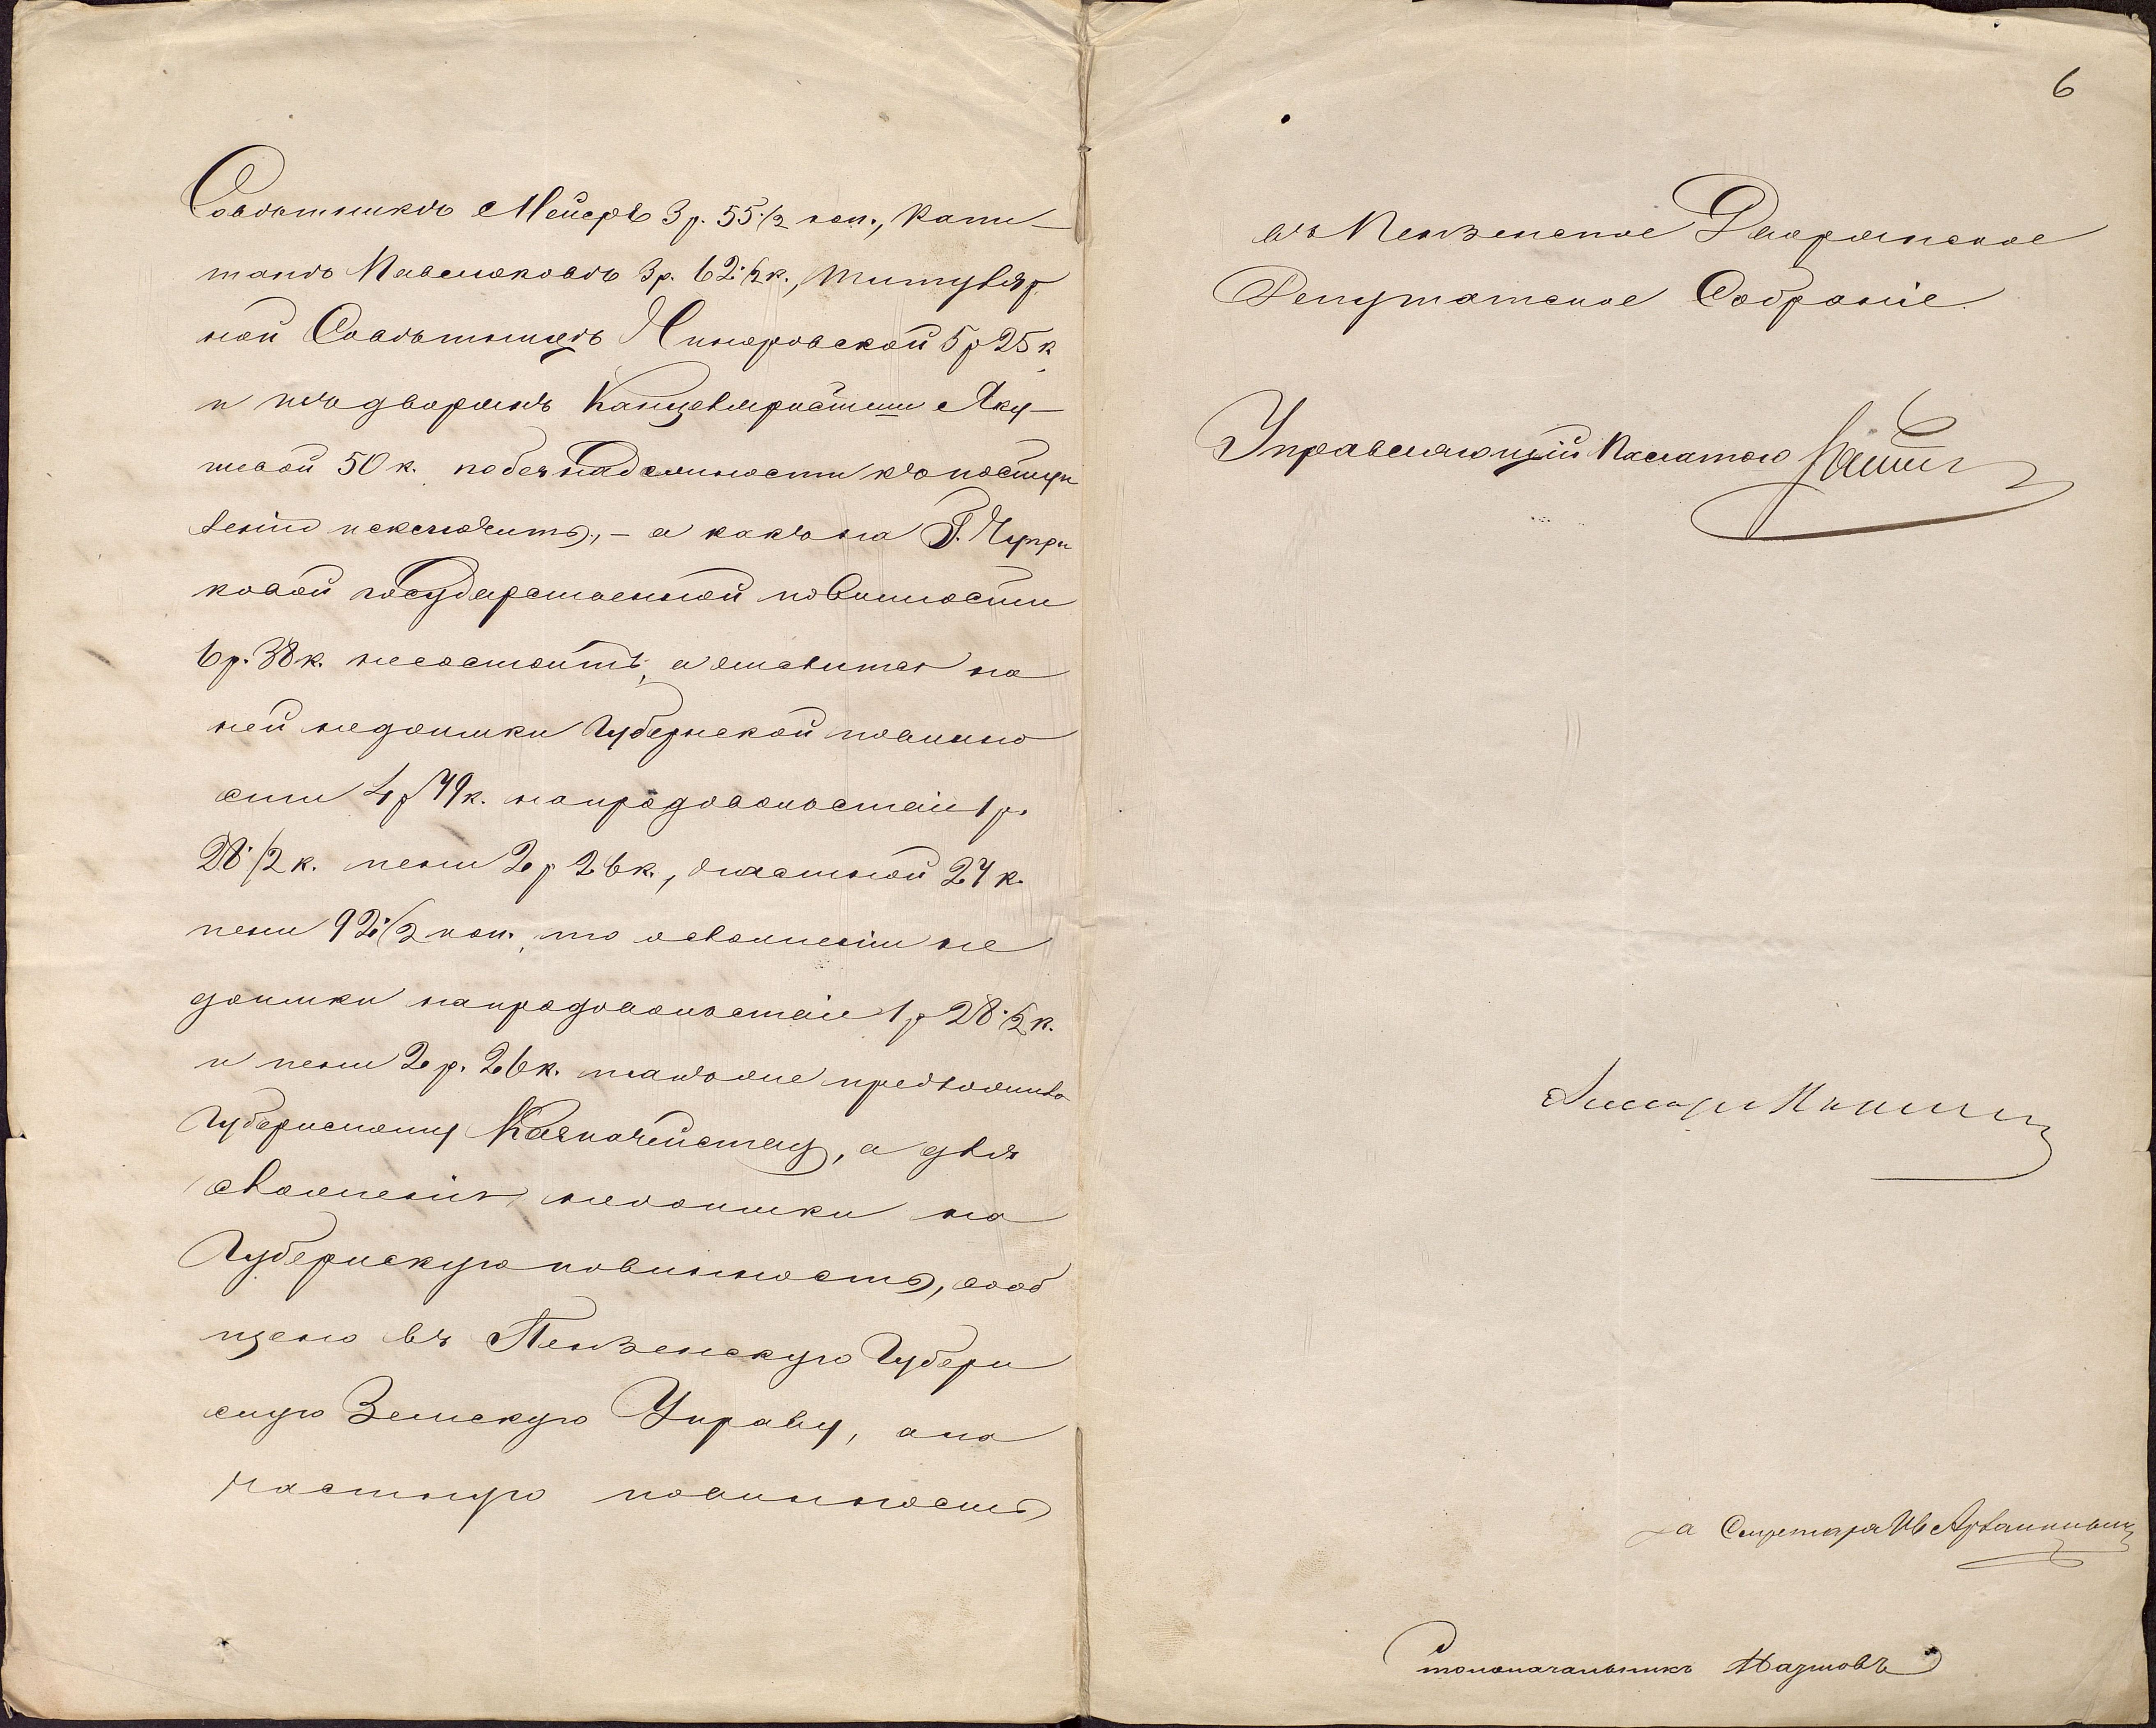 Совѣтникъ Мейеръ 3 р. 55 1/2 коп., Капи-
танъ Павлюковъ 3 р. 62 1/2 к., Титуляр
ной Совѣтницѣ 5 р 25 к
и изъ дворянъ Канцеляристши Яку-
шевой 50 к. по безнадежности къ поступ
ленію исключить, – а какъ на Г. Чири
ковой государственной повинности
6 р. 38 к. несостоитъ, а числится на
ней недоимки Губернской повинно
сти 4 р 49 к. на продовольствіе 1 р.
28 1/2 к. пени 2 р 26 к., частной 24 к.
пени 92 1/2 коп., то о сложеніи не
доимки на продовольствіе 1 р 28 1/2 к.
и пени 2 р. 26 к. также предложено
Губернскому Казначейству, а для
сложенія недоимки на
Губернскую повинность, сооб
щено въ Пензенскую Губерн
скую Земскую Управу, а на
частную повинность
6
въ Пензенское Дворянское
Депутатское Собраніе.
Управляющій Палатою
за Секретаря
Столоначальникъ